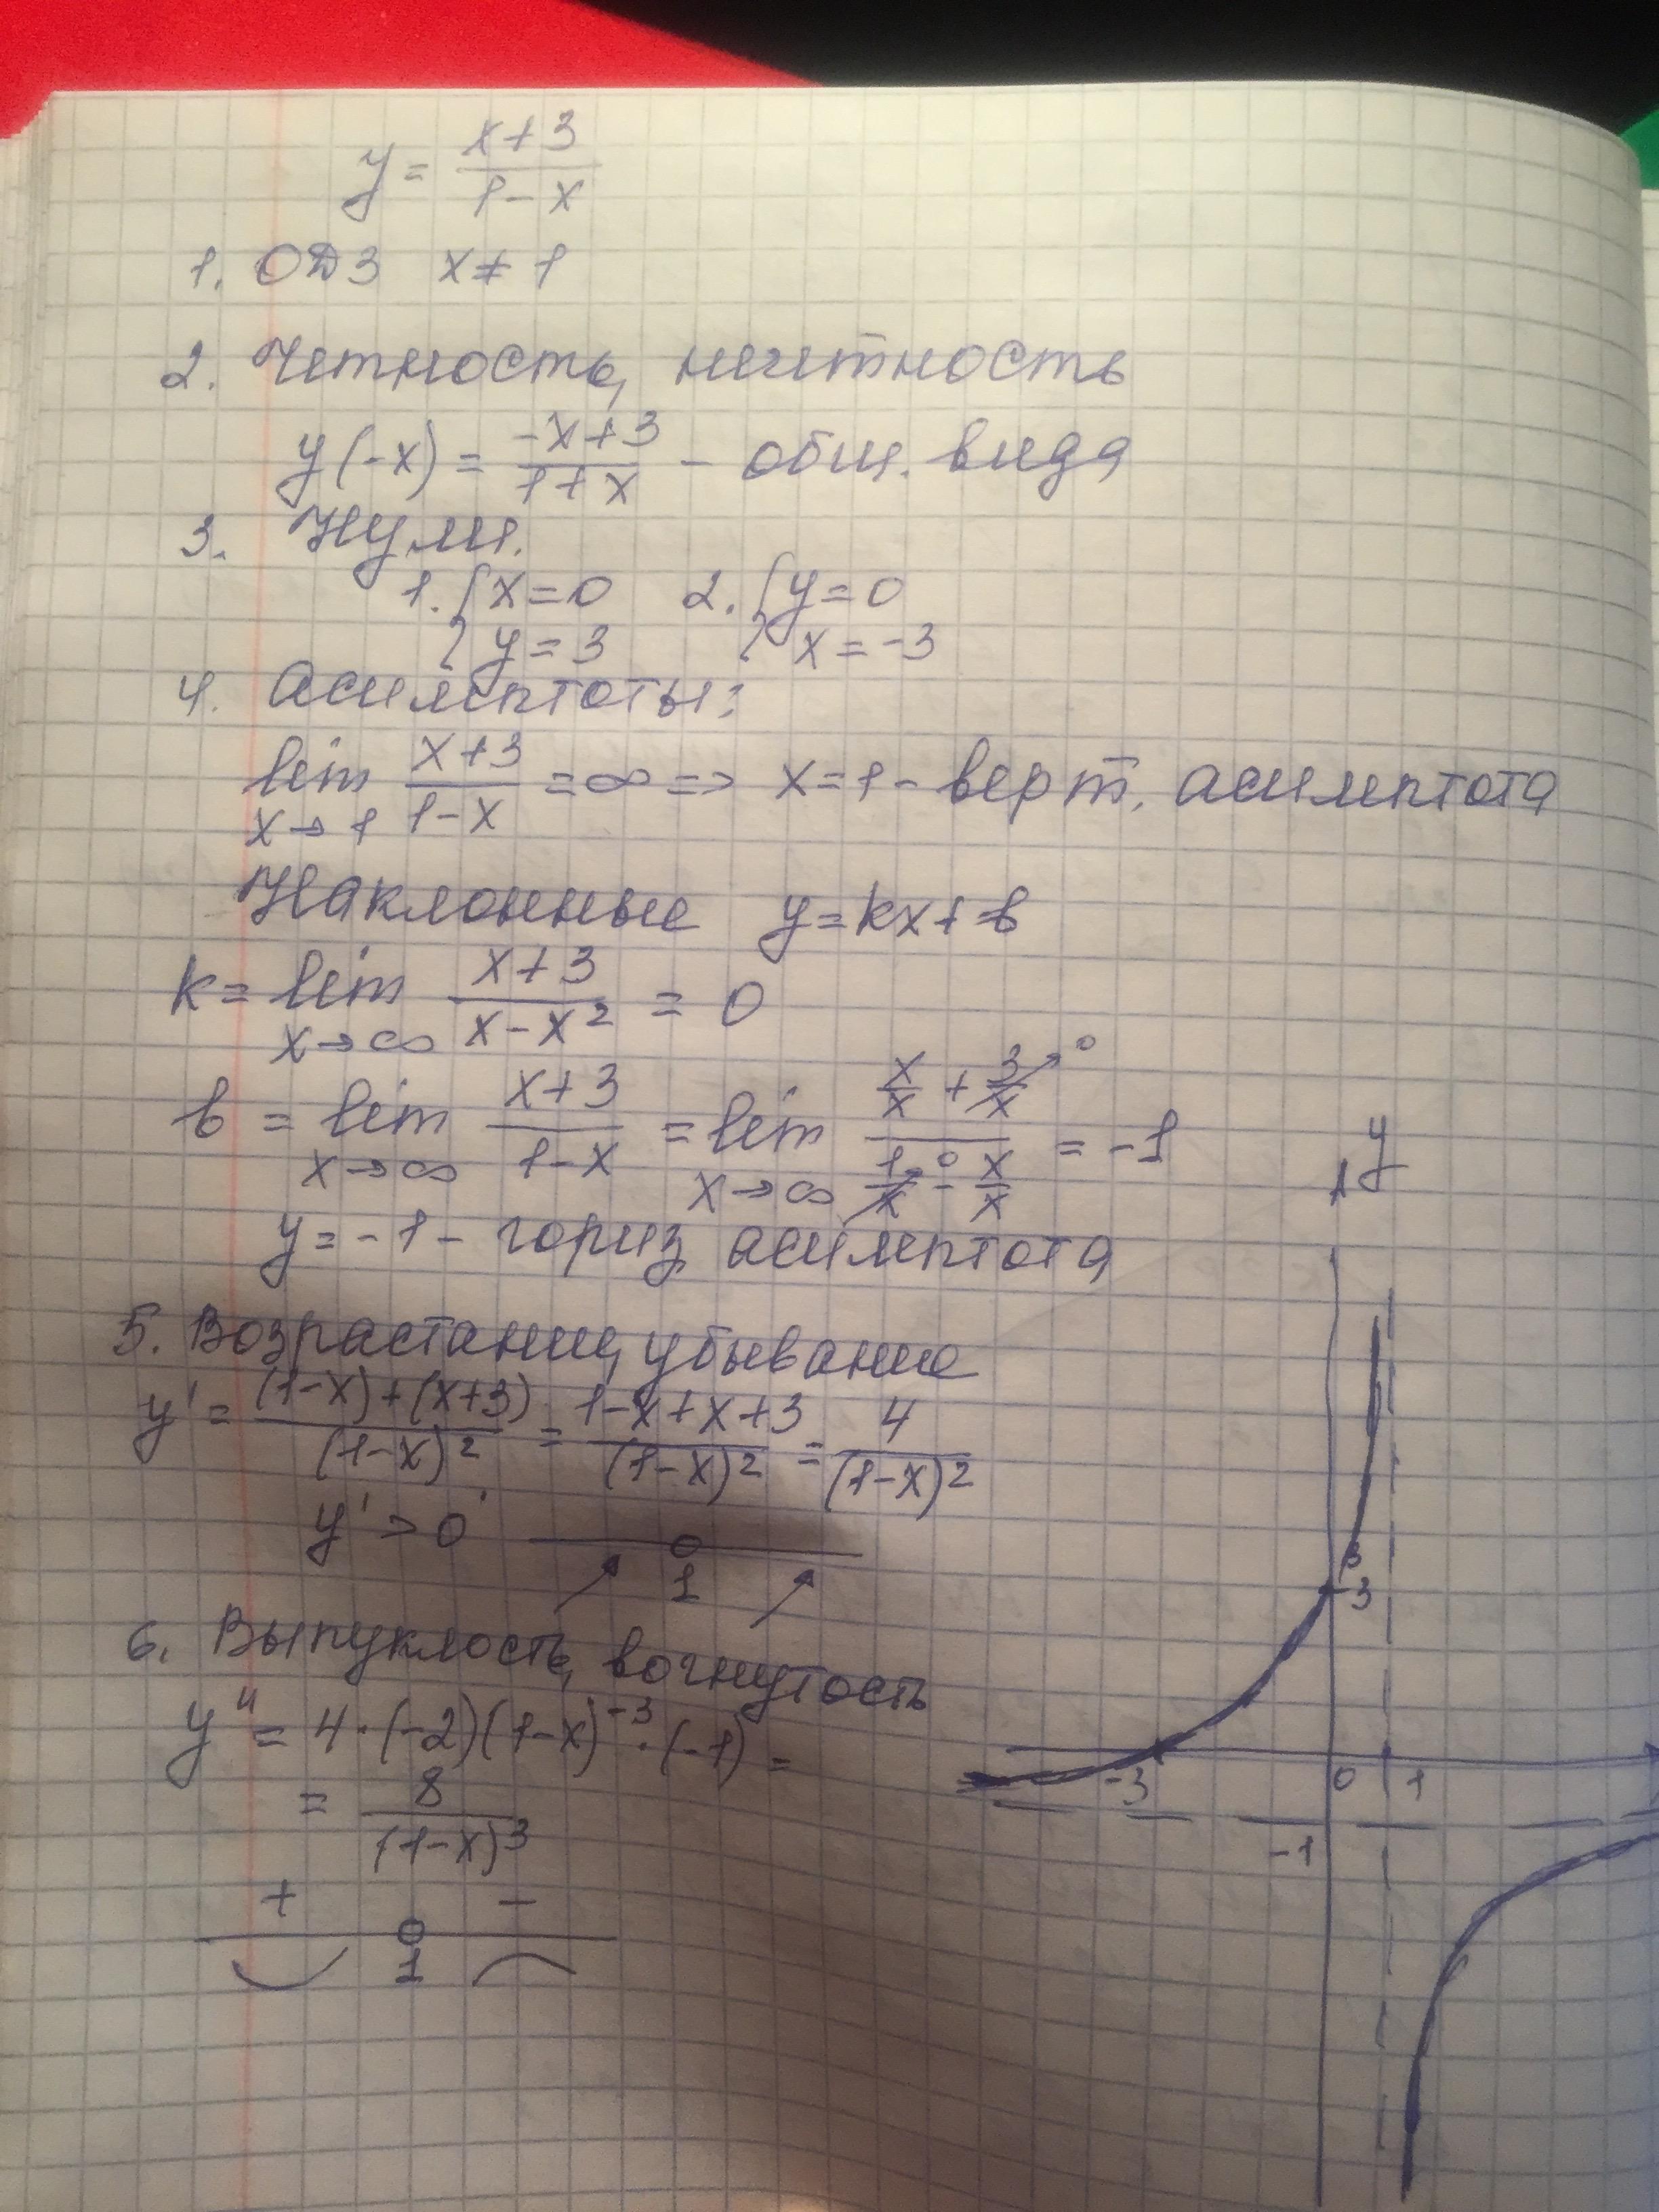 y = (x+3)/(1-x)
1. ОДЗ x ≠ 1
2. Четность, нечетность
y(-x) = (-x+3)/(1+x) - общ. вида
3. Нули.
1. { x=0 2. { y=0
y=3 x=-3
4. Асимптоты:
lim x→1 (x+3)/(1-x) = ∞ => x=1 - верт. асимптота
Наклонные y=kx+b
k = lim x→∞ (x+3)/(x-x²) = 0
b = lim x→∞ (x+3)/(1-x) = lim x→∞ (x/x + 3/x→0)/(1/x→0 - x/x) = -1
y=-1 - гориз. асимптота
5. Возрастание, убывание
y' = ((1-x)+(x+3))/(1-x)² = (1-x+x+3)/(1-x)² = 4/(1-x)²
y' > 0
1
6. Выпуклость, вогнутость
y'' = 4·(-2)(1-x)⁻³·(-1) =
= 8/(1-x)³
+ -
1
y
3
-3 0 1
-1